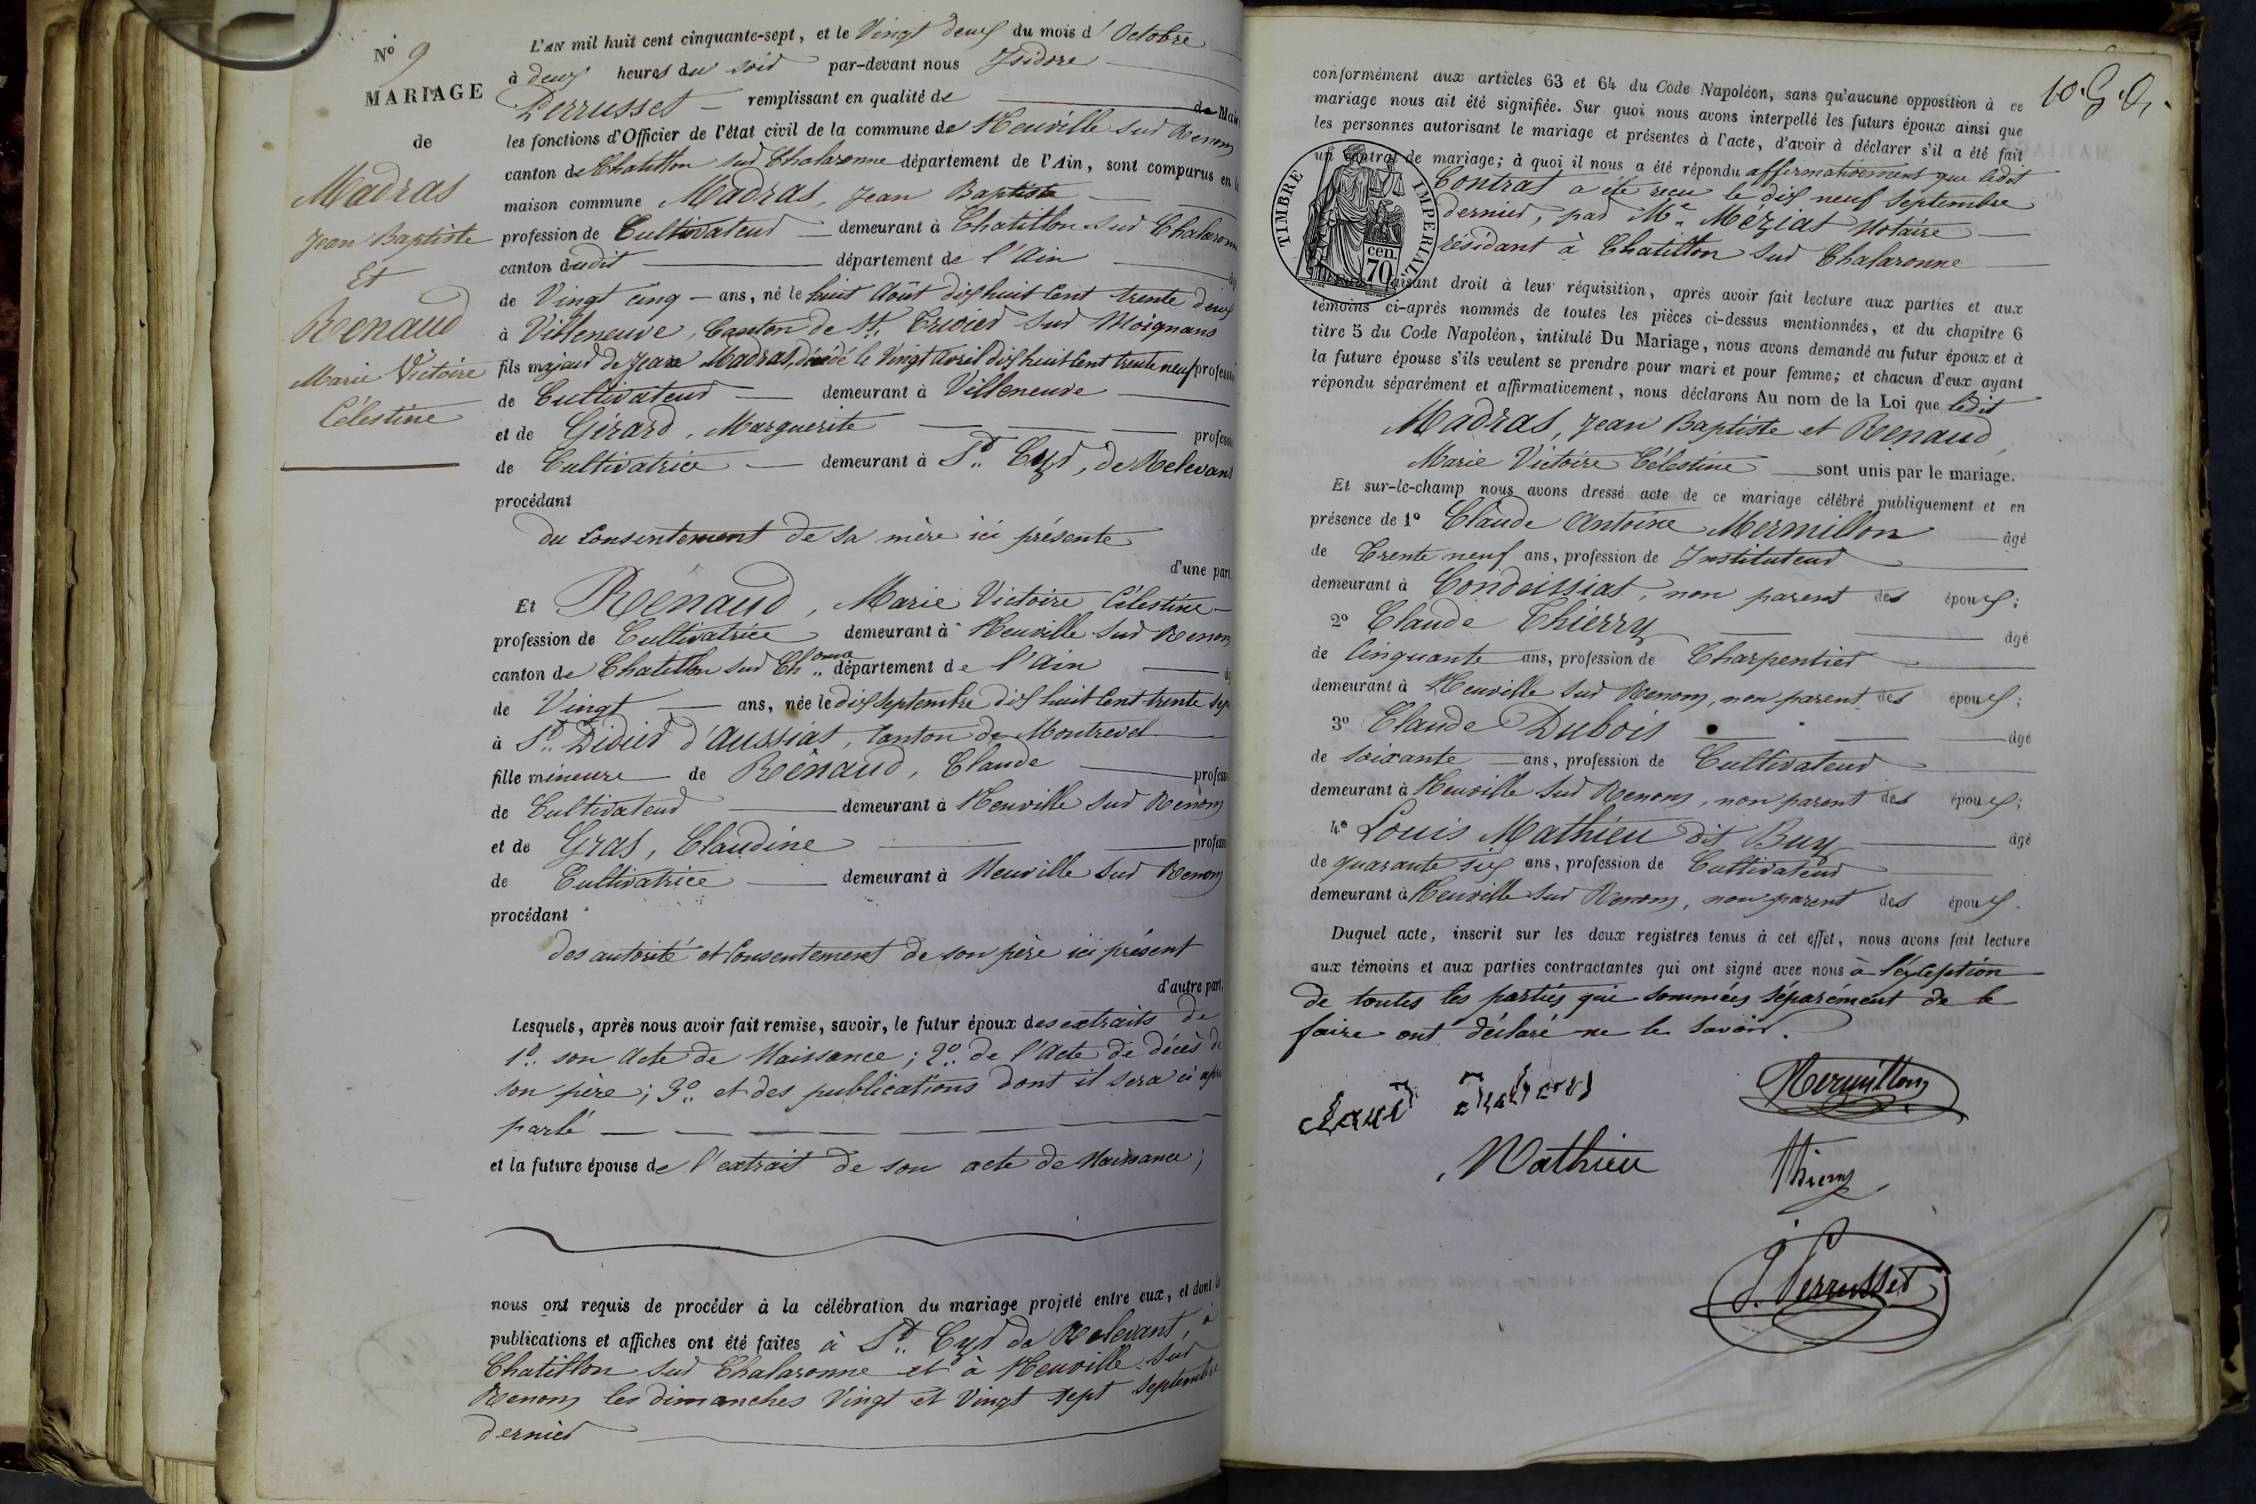 N° 9
MARIAGE
de
Madras
Jean Baptiste
Et
Renaud
Marie Victoire
Célestine
L'AN mil huit cent cinquante-sept, et le Vingt deux du mois d'Octobre
à deux heures du soir par-devant nous Isidore
Perrusset remplissant en qualité de de Maire
les fonctions d'Officier de l'état civil de la commune de Neuville sur Renom
canton de Chatillon sur Chalaronne département de l'Ain, sont comparus en la
maison commune Madras, Jean Baptiste
profession de Cultivateur demeurant à Chatillon sur Chalaronne
canton dudit département de l'Ain
de Vingt cinq ans, né le huit Août dix huit Cent trente deux
à Villeneuve, Canton de St. Trivier sur Moignans
fils majeur de Jean Madras, décédé le Vingt Avril dix huit Cent trente neuf profession
de Cultivateur demeurant à Villeneuve
et de Girard, Marguerite profess
de Cultivatrice demeurant à St. Cyr, de Relevant
procédant
du Consentement de sa mère ici présente
d'une part,
Et Renaud, Marie Victoire Célestine
profession de Cultivatrice demeurant à Neuville sur Renom
canton de Chatillon sur Ch..onne département de l'Ain
de Vingt ans, née le dix Septembre dix huit Cent trente sept
à St. Didier d'Aussiat, Canton de Montrevel
fille mineure de Renaud, Claude profess
de Cultivateur demeurant à Neuville sur Renom
et de Gras, Claudine profess
de Cultivatrice demeurant à Neuville sur Renom
procédant
des autorité et Consentement de son père ici présent
d'autre part,
Lesquels, après nous avoir fait remise, savoir, le futur époux des extraits de
1°. son Acte de Naissance; 2°. de l'Acte de décès de
son père; 3°. et des publications dont il sera ci après
parlé
et la future épouse de l'extrait de son acte de Naissance;
nous ont requis de procéder à la célébration du mariage projeté entre eux, et dont les
publications et affiches ont été faites à St. Cyr de Relevant, à
Chatillon sur Chalaronne et à Neuville sur
Renom les dimanches Vingt et Vingt sept Septembre
dernier
conformément aux articles 63 et 64 du Code Napoléon, sans qu'aucune opposition à ce
mariage nous ait été signifiée. Sur quoi nous avons interpellé les futurs époux ainsi que
les personnes autorisant le mariage et présentes à l'acte, d'avoir à déclarer s'il a été fait
un contrat de mariage; à quoi il nous a été répondu affirmativement que ledit
Contrat a été reçu le dix neuf Septembre
dernier, par Me. Méziat Notaire
résidant à Chatillon sur Chalaronne
TIMBRE IMPERIAL
cen.
70
faisant droit à leur réquisition, après avoir fait lecture aux parties et aux
témoins ci-après nommés de toutes les pièces ci-dessus mentionnées, et du chapitre 6
titre 5 du Code Napoléon, intitulé Du Mariage, nous avons demandé au futur époux et à
la future épouse s'ils veulent se prendre pour mari et pour femme; et chacun d'eux ayant
répondu séparément et affirmativement, nous déclarons Au nom de la Loi que ledit
Madras, Jean Baptiste et Renaud,
Marie Victoire Célestine sont unis par le mariage.
Et sur-le-champ nous avons dressé acte de ce mariage célébré publiquement et en
présence de 1° Claude Antoine Mermillon âgé
de Trente neuf ans, profession de Instituteur
demeurant à Condeissiat, non parent des époux;
2° Claude Thierry âgé
de Cinquante ans, profession de Charpentier
demeurant à Neuville sur Renom, non parent des époux;
3° Claude Dubois âgé
de soixante ans, profession de Cultivateur
demeurant à Neuville sur Renom, non parent des époux;
4° Louis Mathieu dit Buy âgé
de quarante six ans, profession de Cultivateur
demeurant à Neuville sur Renom, non parent des époux.
Duquel acte, inscrit sur les deux registres tenus à cet effet, nous avons fait lecture
aux témoins et aux parties contractantes qui ont signé avec nous à l'éxception
de toutes les parties qui sommées séparément de le
faire ont déclaré ne le savoir.
Claud Dubois
Mermillon
Mathieu
Thierry
J. Perrusset